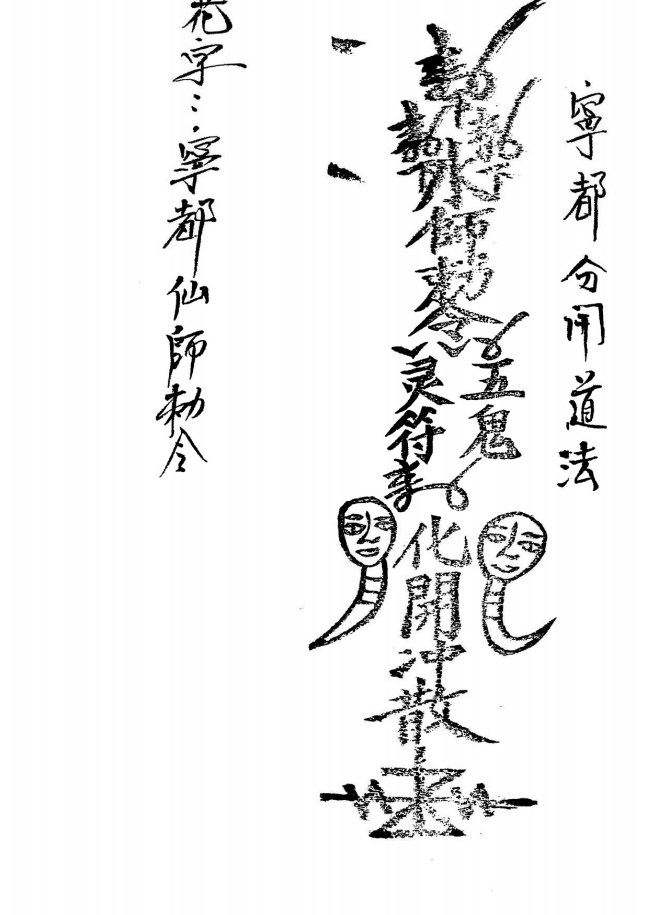 寧都分開道法
師勅令
五鬼
灵符
化開冲散
花字：寧都仙師勅令